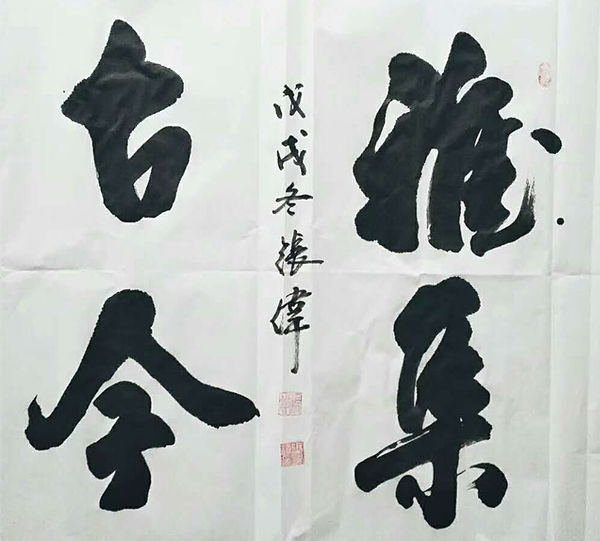 雅集
古今
戊戌冬張偉